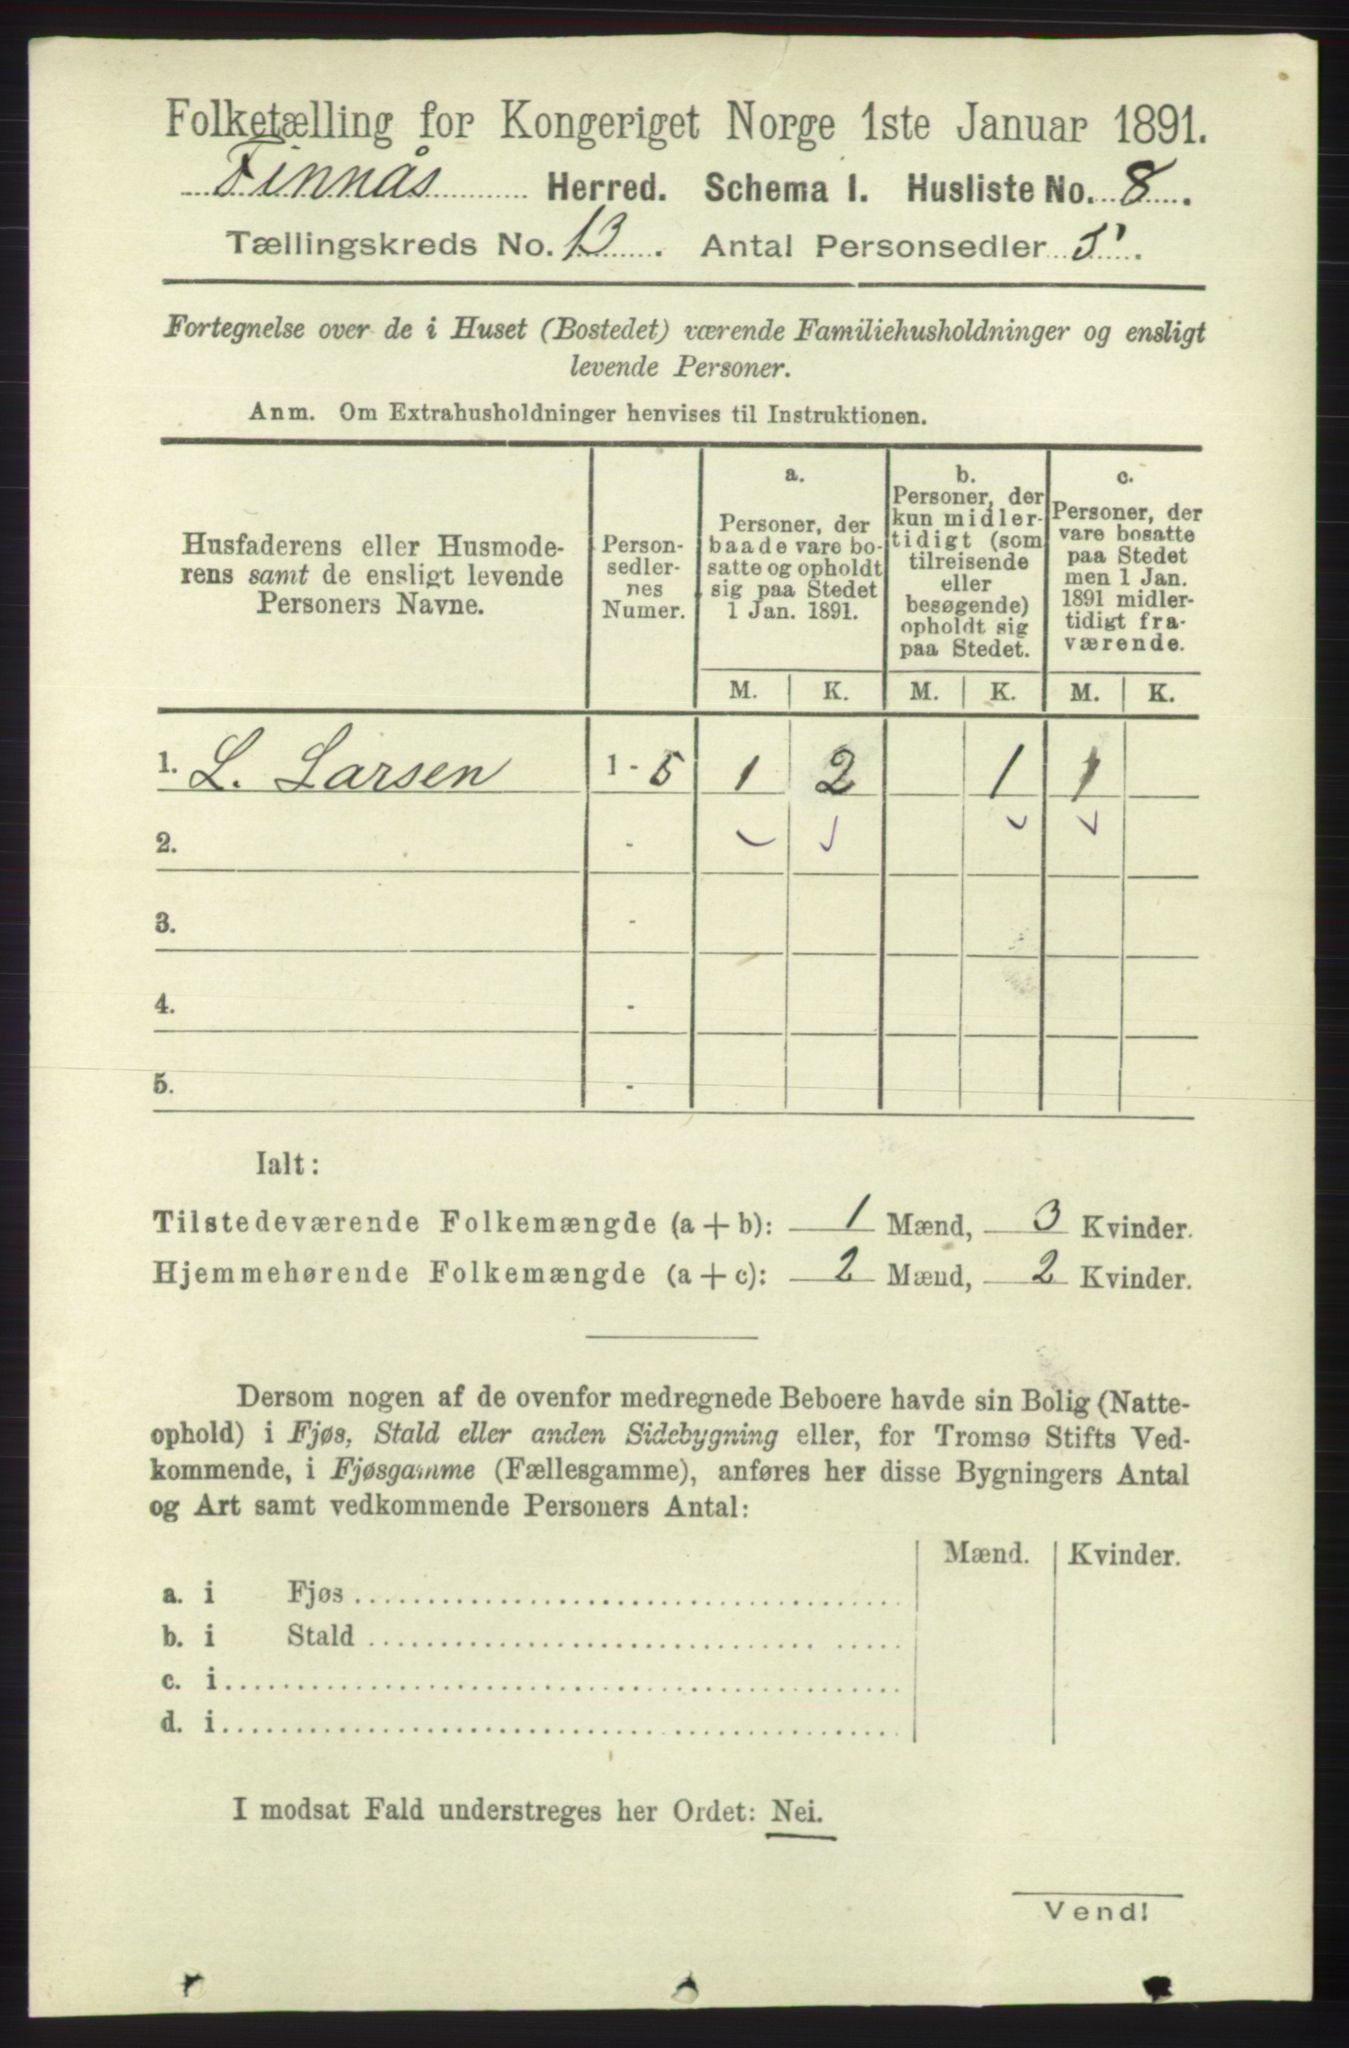 Folketælling for Kongeriget Norge 1ste Januar 1891.
Finnås Herred. Schema I. Husliste No. 8.
Tællingskreds No. 13. Antal Personsedler 5.
Fortegnelse over de i Huset (Bostedet) værende Familiehusholdninger og ensligt
levende Personer.
Anm. Om Extrahusholdninger henvises til Instruktionen.
Husfaderens eller Husmode-
rens samt de ensligt levende
Personers Navne.
Person-
sedler-
nes
Numer.
a.
Personer, der
baade vare bo-
satte og opholdt
sig paa Stedet
1 Jan. 1891.
b.
Personer, der
kun midler-
tidigt (som
tilreisende
eller
besøgende)
opholdt sig
paa Stedet.
c.
Personer, der
vare bosatte
paa Stedet
men 1 Jan.
1891 midler-
tidigt fra-
værende.
M. K. M. K. M. K.
1. L. Larsen 1 - 5 1 2 1 1
2. - ✓ ✓ ✓ ✓
3. -
4. -
5. -
Ialt:
Tilstedeværende Folkemængde (a + b): 1 Mænd, 3 Kvinder.
Hjemmehørende Folkemængde (a + c): 2 Mænd, 2 Kvinder.
Dersom nogen af de ovenfor medregnede Beboere havde sin Bolig (Natte-
ophold) i Fjøs, Stald eller anden Sidebygning eller, for Tromsø Stifts Ved-
kommende, i Fjøsgamme (Fællesgamme), anføres her disse Bygningers Antal
og Art samt vedkommende Personers Antal:
Mænd. Kvinder.
a. i Fjøs
b. i Stald
c. i
d. i
I modsat Fald understreges her Ordet: Nei.
Vend!